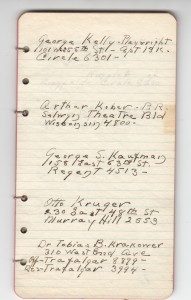 George Kelly - Playwright
West 5th St - Apt 12K -
Circle 6301 -
Arthur Kober - P.R.
Selwyn Theatre Bld
Wisconsin 4800 -
George S. Kaufman
158 East 63rd St
Regent 4513 -
Otto Kruger
230 East 48th St
Murray Hill 2653
Dr Tobias B. Krakower
310 West End Ave
Trafalgar 8879 -
Trafalgar 3994 -